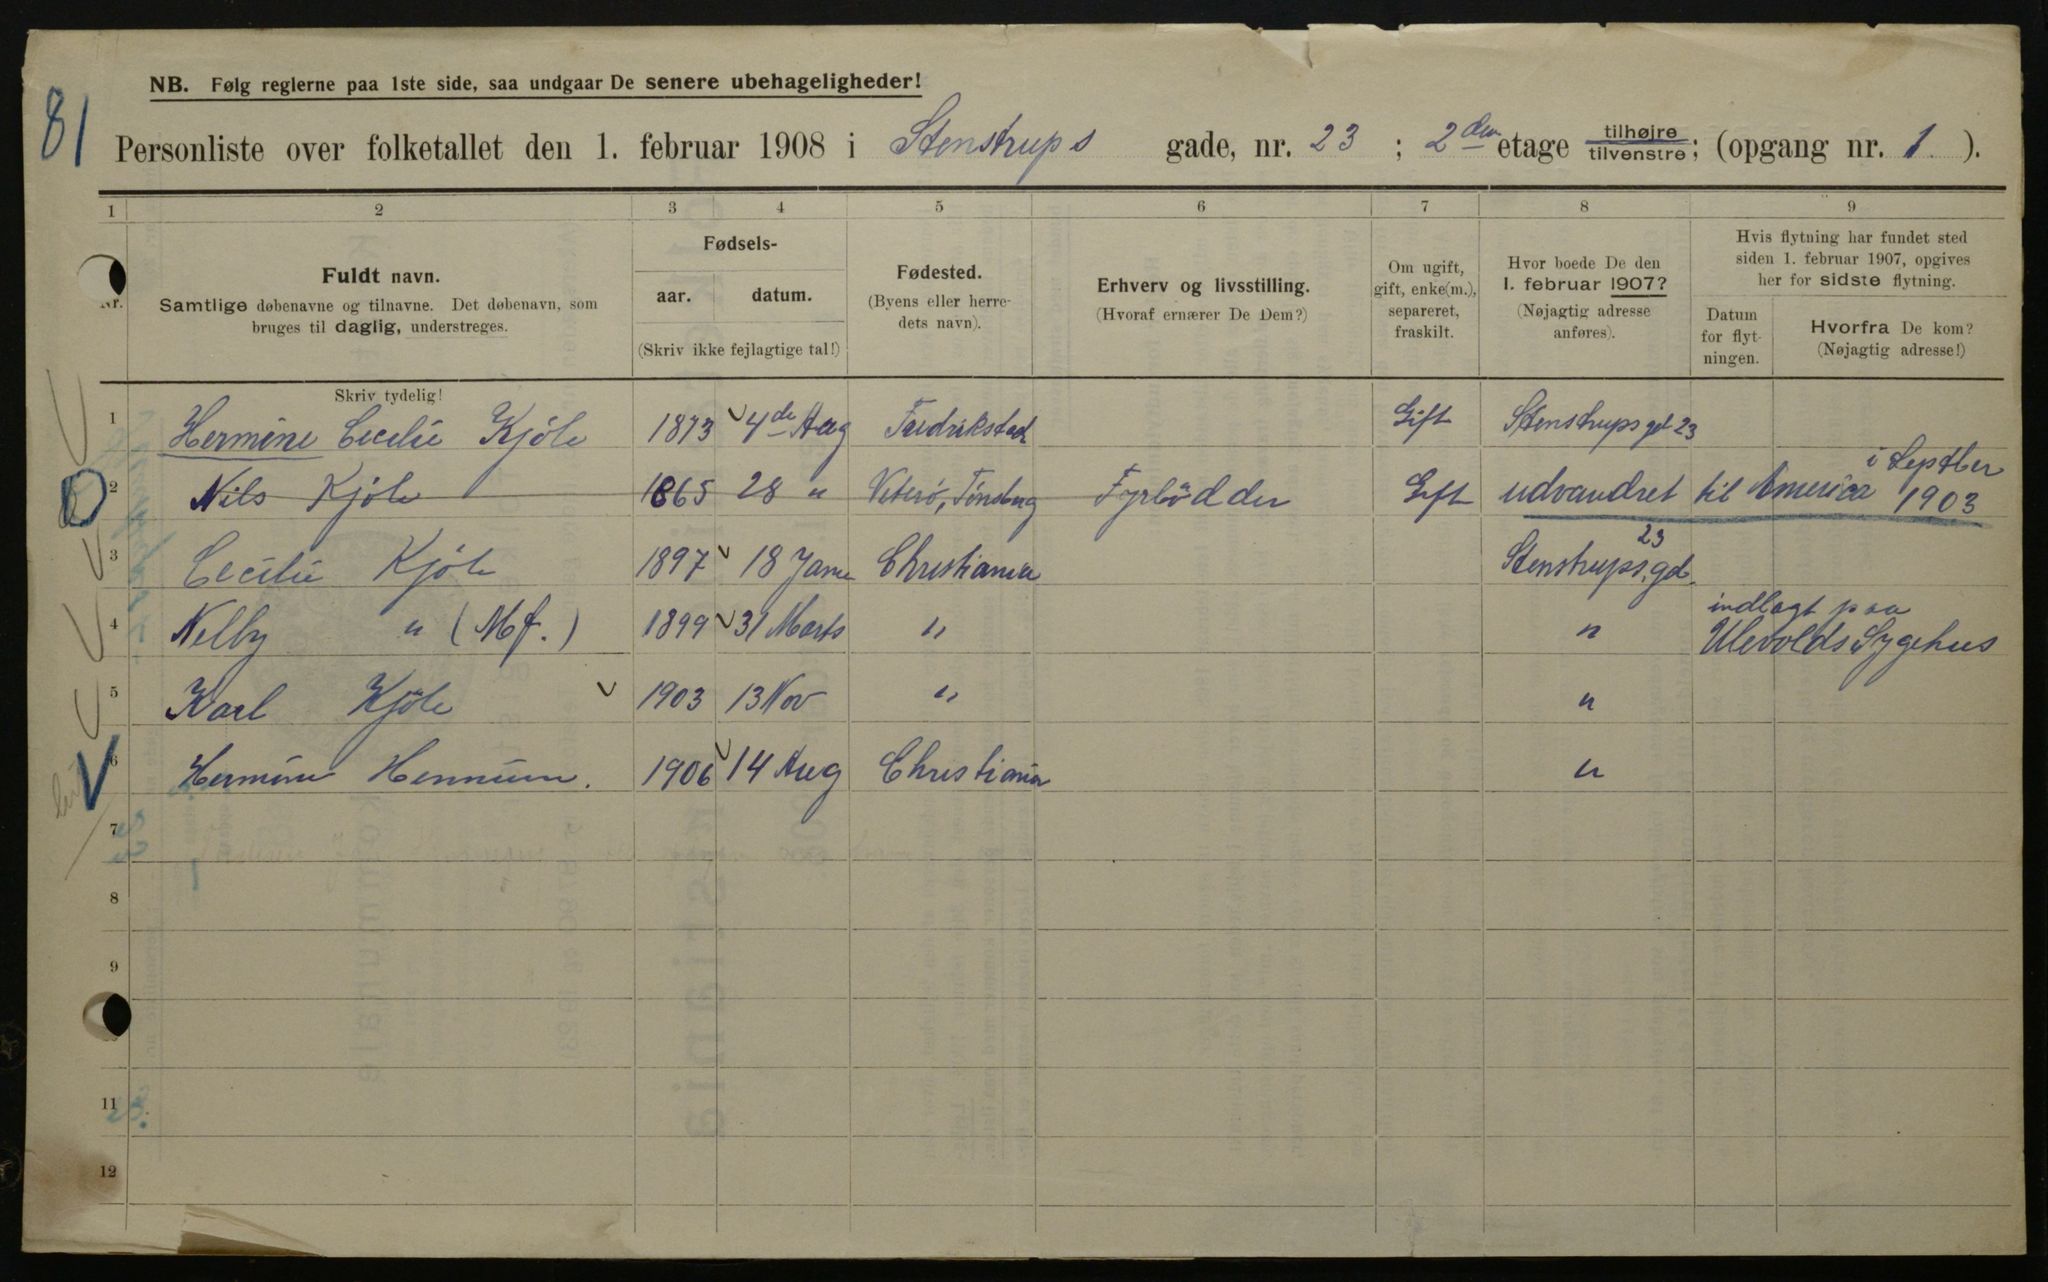 81
NB. Følg reglerne paa 1ste side, saa undgaar De senere ubehageligheder!
Personliste over folketallet den 1. februar 1908 i Stenstrups gade, nr. 23 ; 2den etage tilhøjre tilvenstre; (opgang nr. 1 ).
1 2 3 4 5 6 7 8 9
Nr.
Fuldt navn.
Samtlige døbenavne og tilnavne. Det døbenavn, som
bruges til daglig, understreges.
Skriv tydelig!
Fødsels-
aar. datum.
(Skriv ikke fejlagtige tal!)
Fødested.
(Byens eller herre-
dets navn).
Erhverv og livsstilling.
(Hvoraf ernærer De Dem?)
Om ugift,
gift, enke(m.),
separeret,
fraskilt.
Hvor boede De den
1. februar 1907?
(Nøjagtig adresse
anføres).
Hvis flytning har fundet sted
siden 1. februar 1907, opgives
her for sidste flytning.
Datum
for flyt-
ningen.
Hvorfra De kom?
(Nøjagtig adresse!)
1 Hermine Cecilie Kjöle 1873 4de Aug Fredrikstad Gift Stenstrups gd 23
2 Nils Kjöle 1865 28 " Veterö, Tönsberg Fyrbödder Gift udvandret til America i Septber 1903
3 Cecilie Kjöle 1897 18 Janu Christiania Stenstrups gd. 23
4 Nelly " (Mf.) 1899 31 Marts " " indlagt paa
Ulevolds Sygehus
5 Karl Kjöle 1903 13 Nov " "
6 Hermine Hennum. 1906 14 Aug Christiania "
7
8
9
11
12